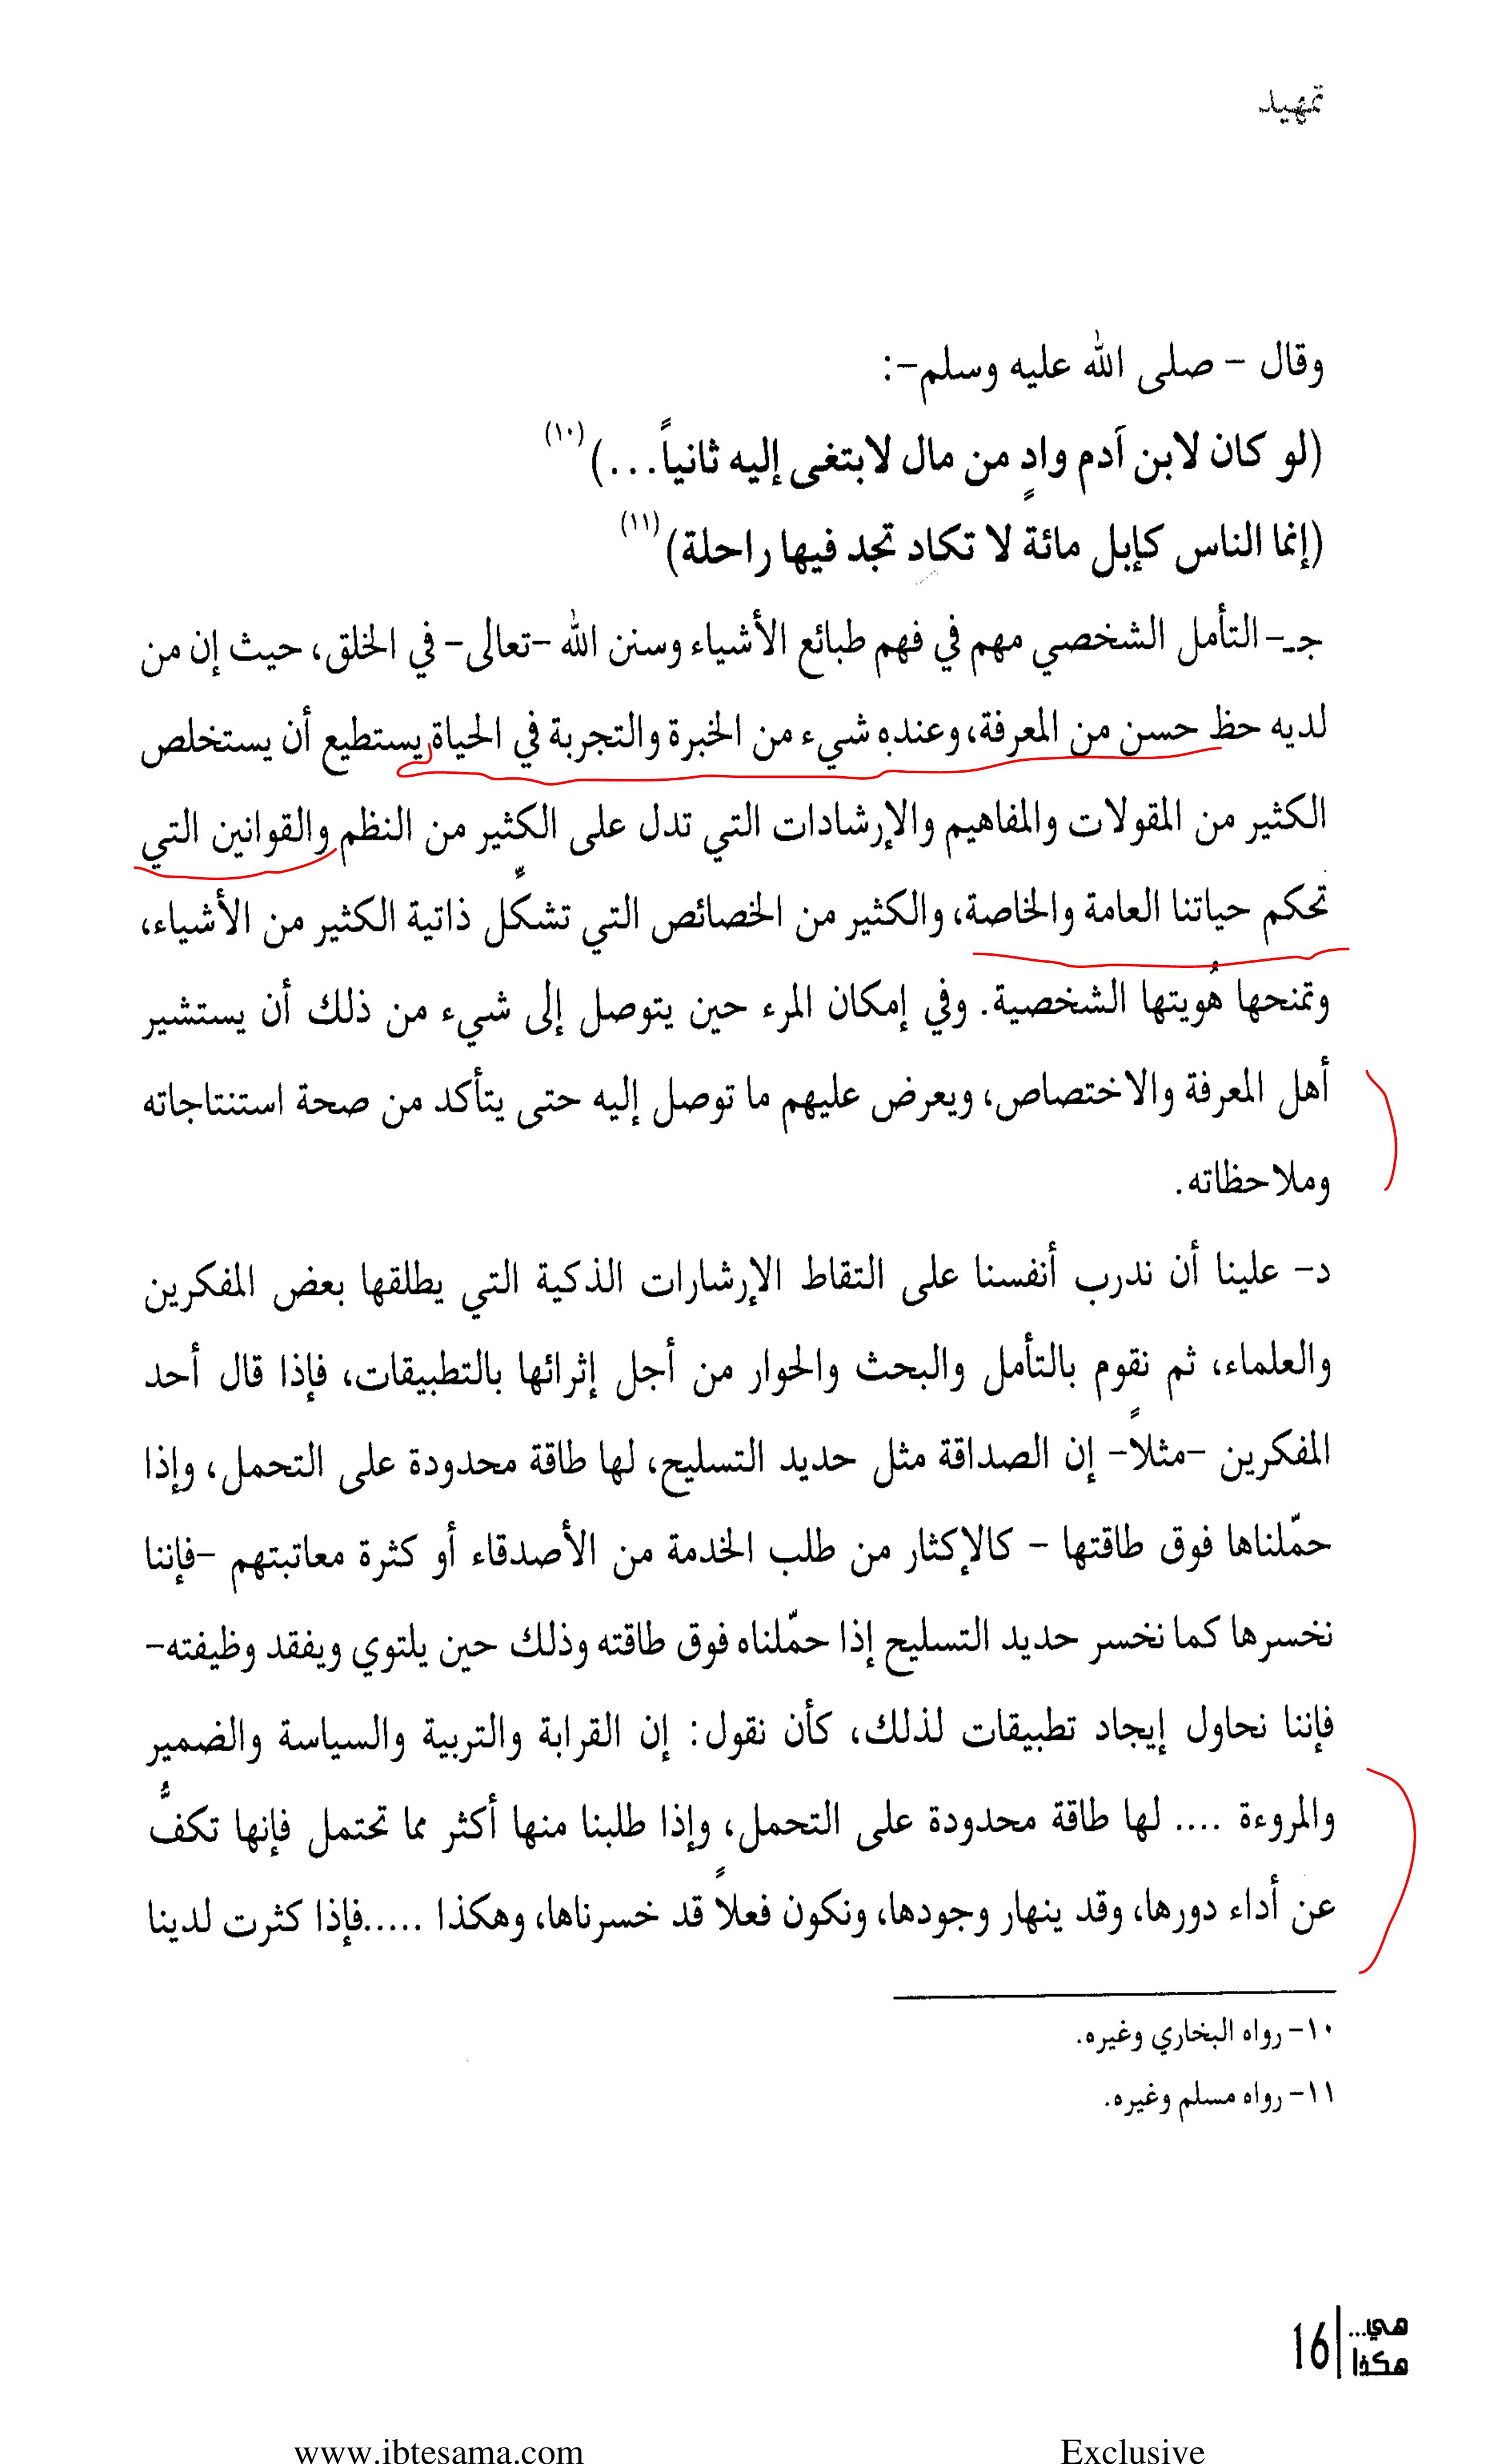 تمهيد
وقال - صلى الله عليه وسلم-:
(لو كان لابن آدم وادٍ من مال لابتغى إليه ثانياً...)(١٠)
(إنما الناس كإبل مائة لا تكاد تجد فيها راحلة)(١١)
جـ- التأمل الشخصي مهم في فهم طبائع الأشياء وسنن الله -تعالى- في الخلق، حيث إن من
لديه حظ حسن من المعرفة، وعنده شيء من الخبرة والتجربة في الحياة يستطيع أن يستخلص
الكثير من المقولات والمفاهيم والإرشادات التي تدل على الكثير من النظم والقوانين التي
تحكم حياتنا العامة والخاصة، والكثير من الخصائص التي تشكِّل ذاتية الكثير من الأشياء،
وتمنحها هُويتها الشخصية. وفي إمكان المرء حين يتوصل إلى شيء من ذلك أن يستشير
أهل المعرفة والاختصاص، ويعرض عليهم ما توصل إليه حتى يتأكد من صحة استنتاجاته
وملاحظاته.
د- علينا أن ندرب أنفسنا على التقاط الإرشارات الذكية التي يطلقها بعض المفكرين
والعلماء، ثم نقوم بالتأمل والبحث والحوار من أجل إثرائها بالتطبيقات، فإذا قال أحد
المفكرين -مثلاً- إن الصداقة مثل حديد التسليح، لها طاقة محدودة على التحمل، وإذا
حمّلناها فوق طاقتها - كالإكثار من طلب الخدمة من الأصدقاء أو كثرة معاتبتهم -فإننا
نخسرها كما نخسر حديد التسليح إذا حمّلناه فوق طاقته وذلك حين يلتوي ويفقد وظيفته-
فإننا نحاول إيجاد تطبيقات لذلك، كأن نقول: إن القرابة والتربية والسياسة والضمير
والمروءة .... لها طاقة محدودة على التحمل، وإذا طلبنا منها أكثر مما تحتمل فإنها تكفُّ
عن أداء دورها، وقد ينهار وجودها، ونكون فعلاً قد خسرناها، وهكذا .....فإذا كثرت لدينا
١٠- رواه البخاري وغيره.
١١- رواه مسلم وغيره.
هي...
هكذا
16
www.ibtesama.com Exclusive